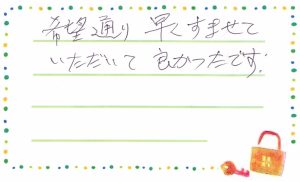 希望通り 早くすませて
いただいて 良かったです.